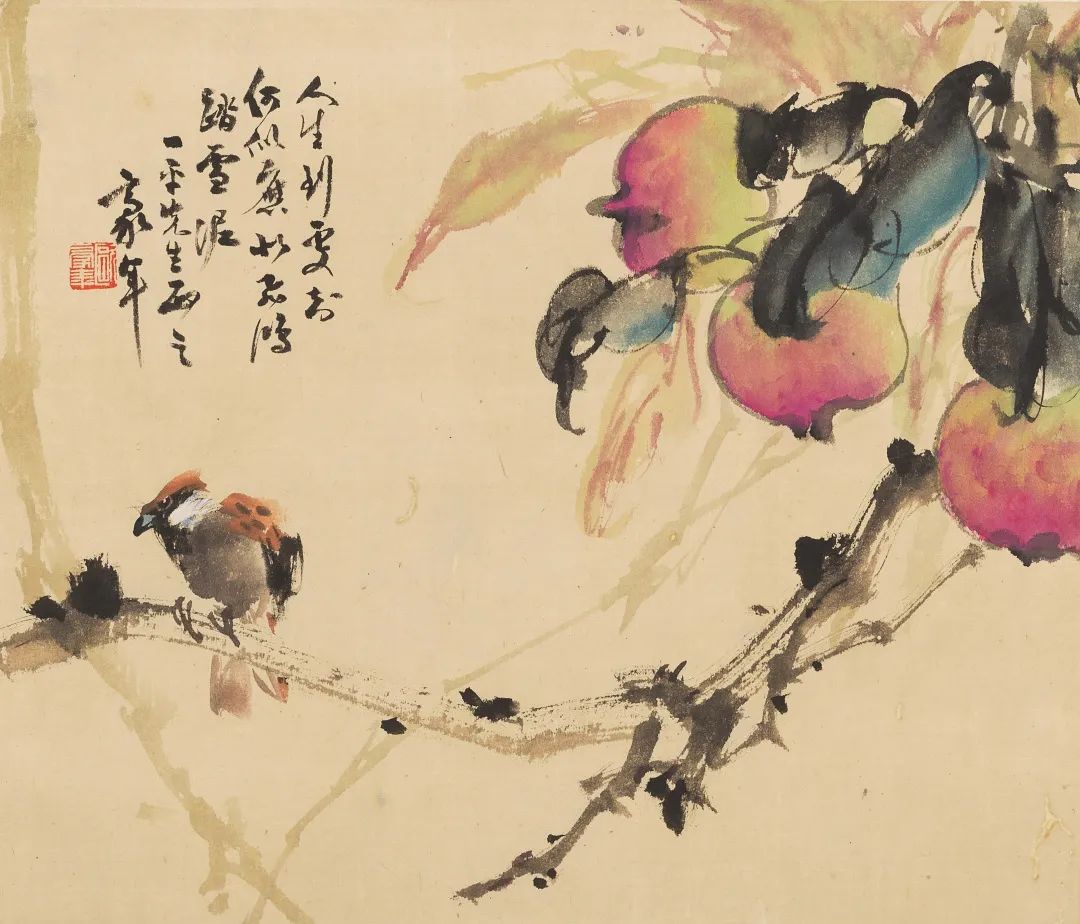 人生到處知
何似應似飛鴻
踏雪泥
一平先生之
豪年